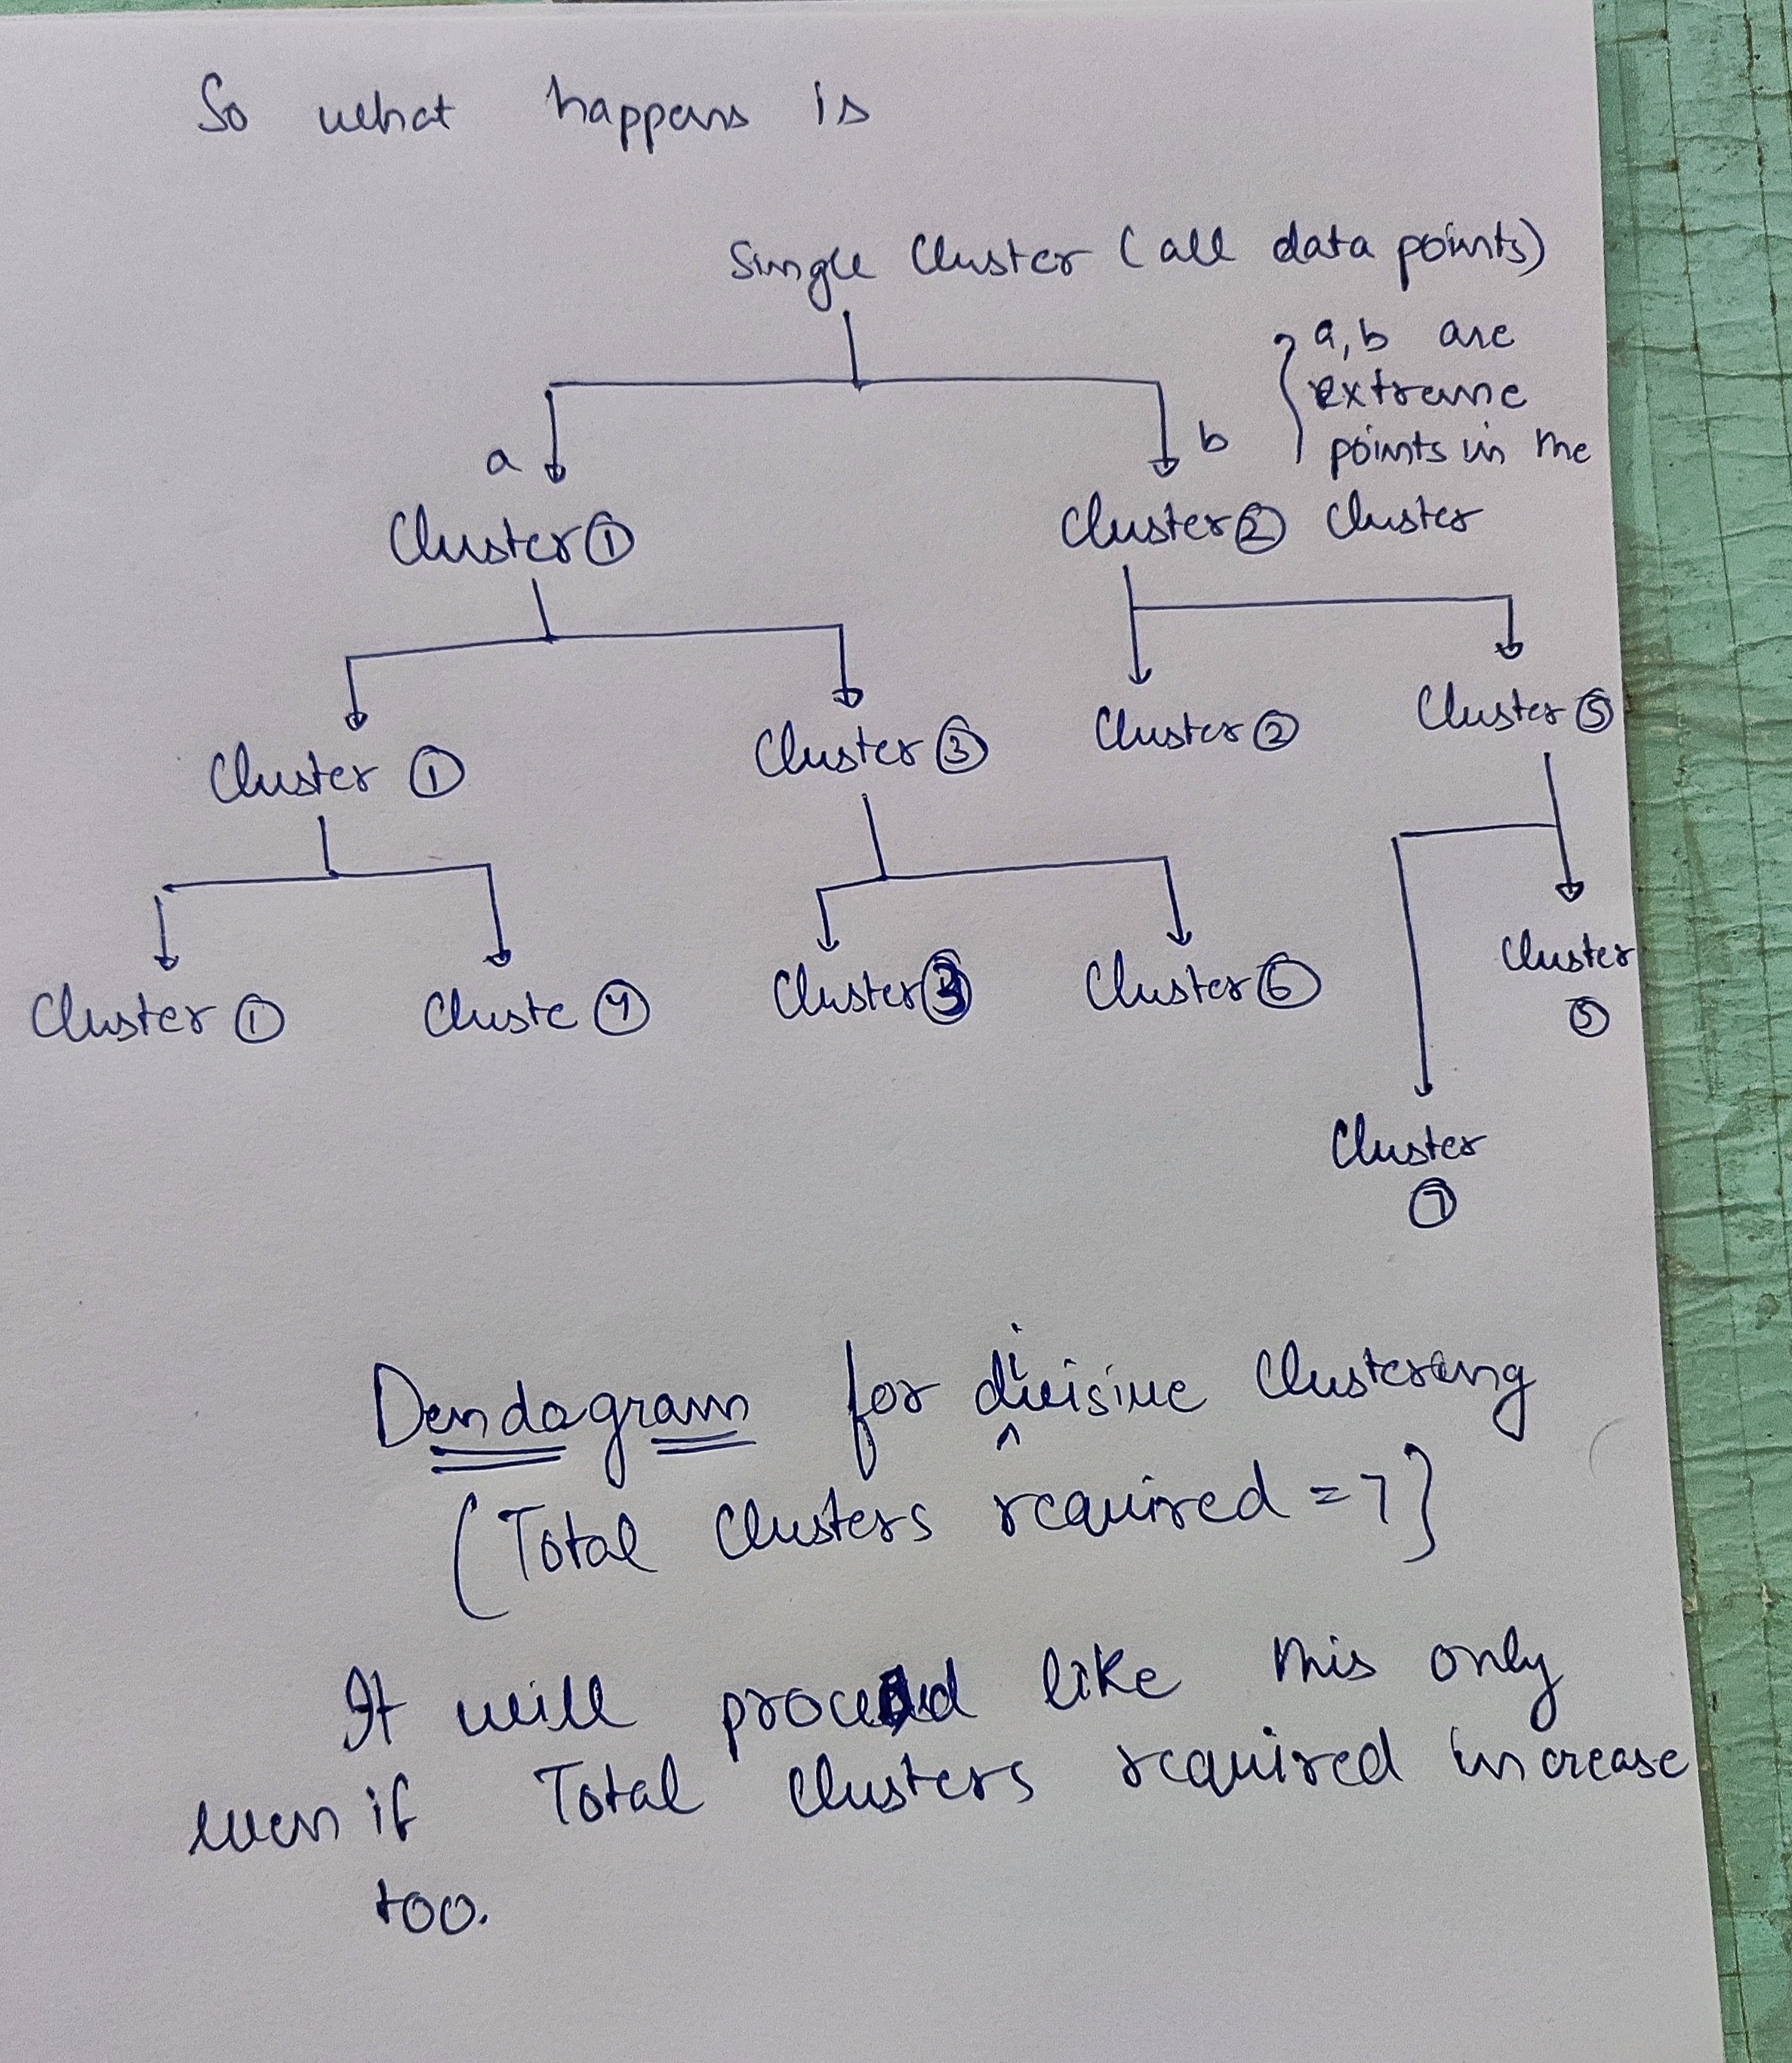 So what happens is
Single Cluster (all data points)
a, b are
extreme
points in the
Cluster
a
b
Cluster ①
Cluster ②
Cluster ①
Cluster ③
Cluster ②
Cluster ⑤
Cluster ①
Cluste ④
Cluster ③
Cluster ⑥
Cluster
⑤
Cluster
⑦
Dendogram for divisive Clustering
(Total Clusters required = 7}
It will proceed like this only
even if Total Clusters required increase
too.